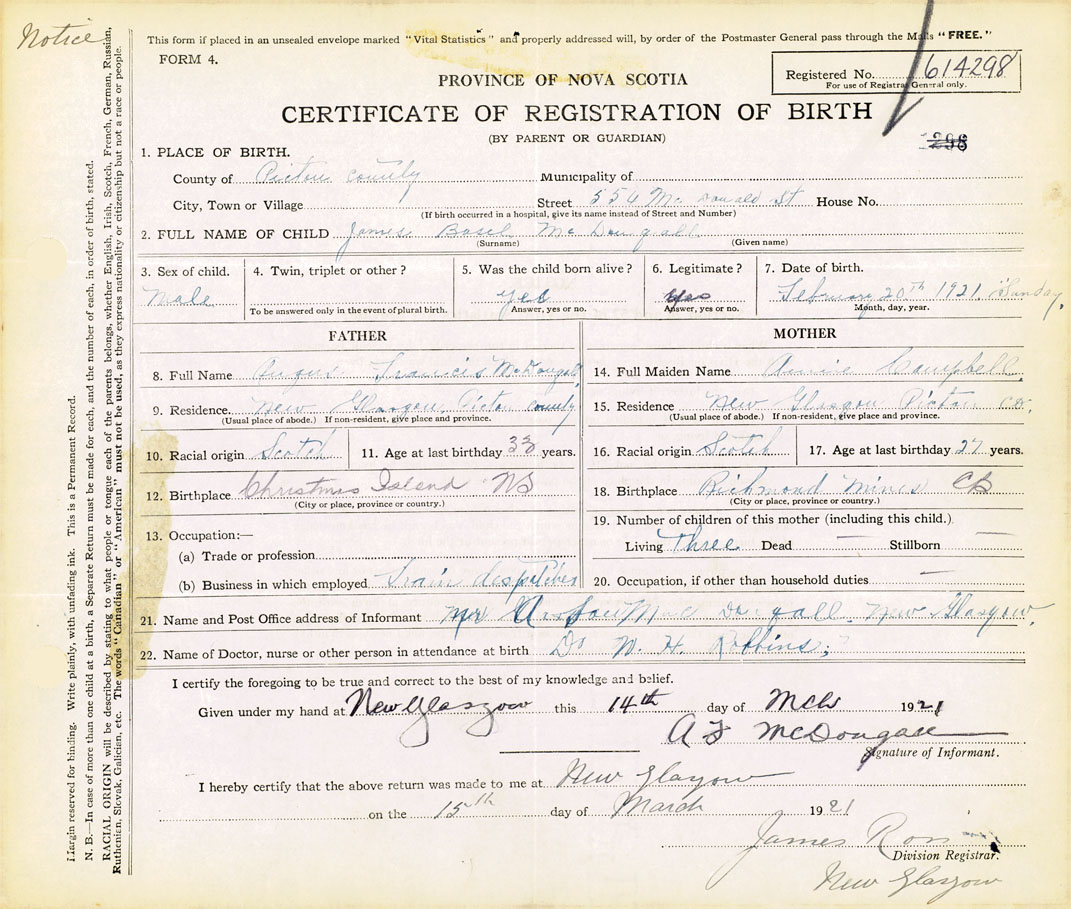 Notice
This form if placed in an unsealed envelope marked "Vital Statistics" and properly addressed will, by order of the Postmaster General pass through the Mails "FREE."
FORM 4.
PROVINCE OF NOVA SCOTIA
Registered No. 614298
For use of Registrar General only.
CERTIFICATE OF REGISTRATION OF BIRTH
(BY PARENT OR GUARDIAN)
1. PLACE OF BIRTH.
County of Pictou County Municipality of
City, Town or Village Street 554 McDonald St House No.
(If birth occurred in a hospital, give its name instead of Street and Number)
2. FULL NAME OF CHILD James Basil McDougall
(Surname) (Given name)
3. Sex of child. 4. Twin, triplet or other? 5. Was the child born alive? 6. Legitimate? 7. Date of birth.
Male Yes Yes February 20th 1921 Sunday,
To be answered only in the event of plural birth. Answer, yes or no. Answer, yes or no. Month, day, year.
FATHER MOTHER
8. Full Name Angus Francis McDougall 14. Full Maiden Name Annie Campbell
9. Residence New Glasgow Pictou County 15. Residence New Glasgow Pictou Co.
(Usual place of abode.) If non-resident, give place and province. (Usual place of abode.) If non-resident, give place and province.
10. Racial origin Scotch 11. Age at last birthday years. 16. Racial origin Scotch 17. Age at last birthday 27 years.
12. Birthplace Christmas Island NS 18. Birthplace Richmond Mines CB
(City or place, province or country.) (City or place, province or country.)
19. Number of children of this mother (including this child.)
13. Occupation:—
Living Three Dead — Stillborn —
(a) Trade or profession
(b) Business in which employed Train despatcher 20. Occupation, if other than household duties —
21. Name and Post Office address of Informant Mr MacDougall. New Glasgow,
22. Name of Doctor, nurse or other person in attendance at birth Dr W. H. Robbins;
I certify the foregoing to be true and correct to the best of my knowledge and belief.
Given under my hand at New Glasgow this 14th day of Mch 1921
A F McDougall
Signature of Informant.
I hereby certify that the above return was made to me at New Glasgow
on the 15th day of March 1921
James Ross
Division Registrar.
New Glasgow
Margin reserved for binding. Write plainly, with unfading ink. This is a Permanent Record.
N. B.—In case of more than one child at a birth, a Separate Return must be made for each, and the number of each, in order of birth, stated.
RACIAL ORIGIN will be described by stating to what people or tongue each of the parents belongs, whether English, Irish, Scotch, French, German, Russian,
Ruthenian, Slovak, Galician, etc. The words "Canadian" or "American" must not be used, as they express nationality or citizenship but not a race or people.